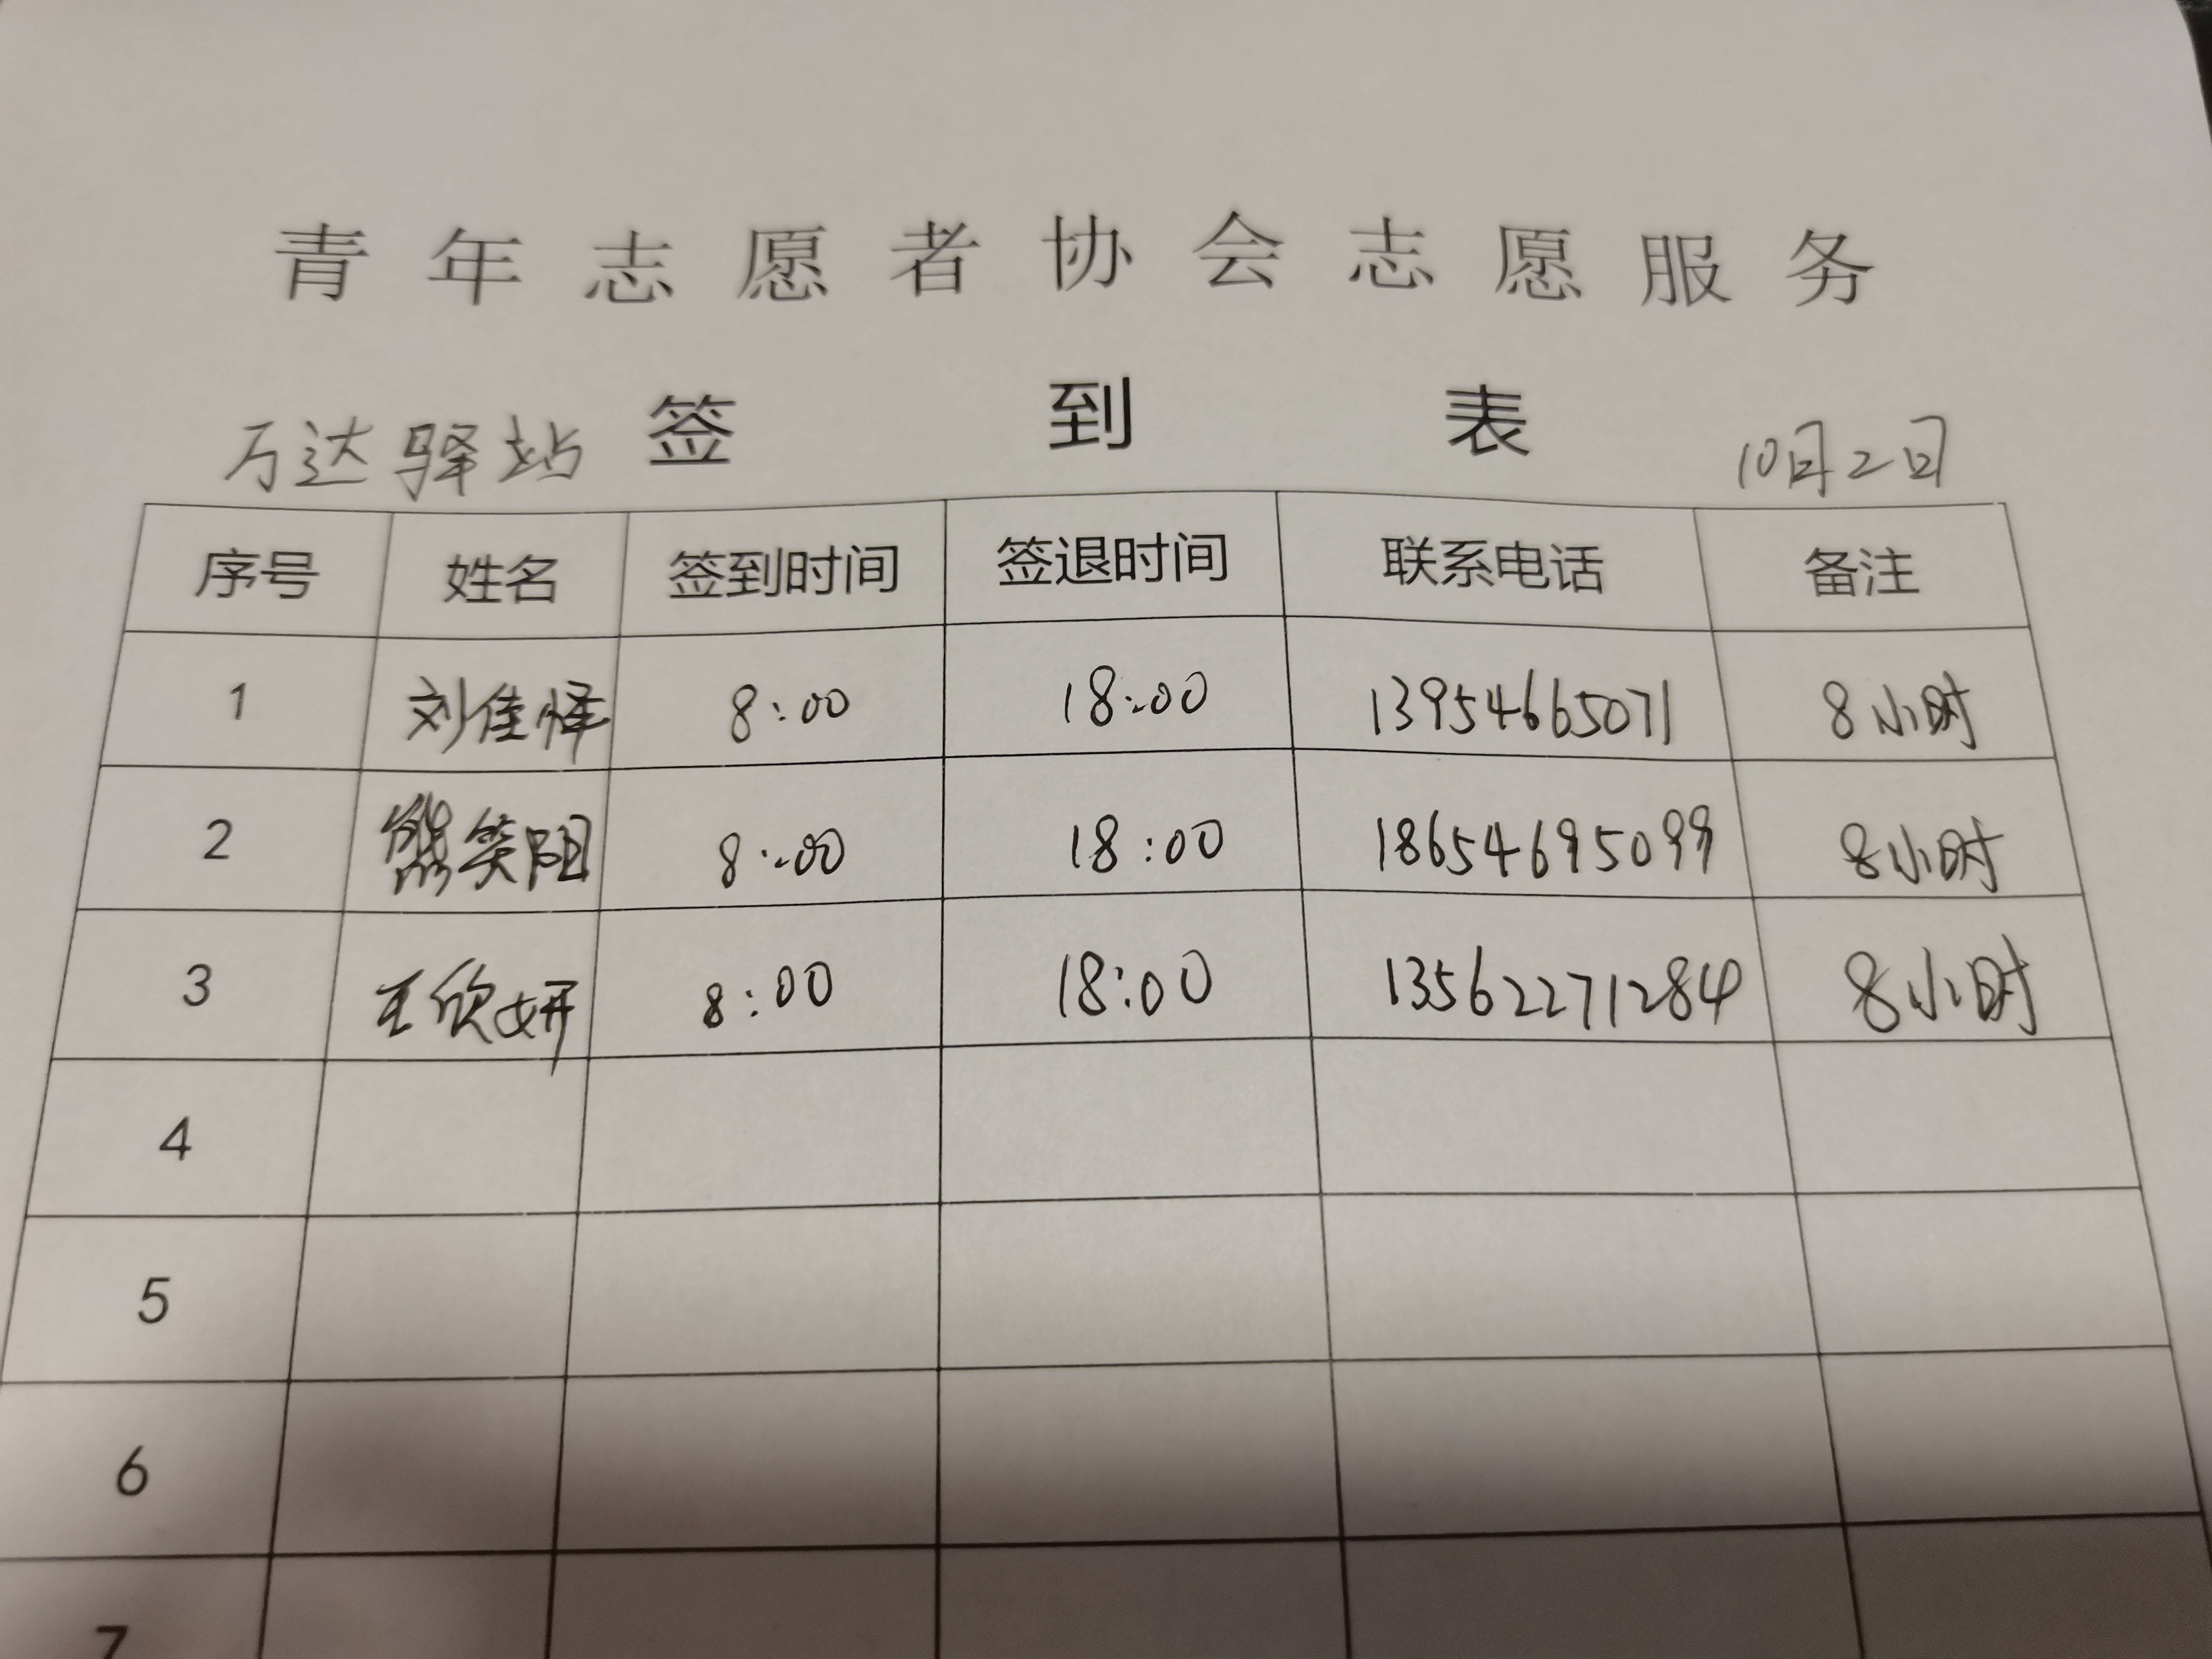 青年志愿者协会志愿服务
签到表
万达驿站 10月2日
序号 姓名 签到时间 签退时间 联系电话 备注
1 刘佳怿 8:00 18:00 13954665071 8小时
2 熊笑阳 8:00 18:00 18654695099 8小时
3 王欣妍 8:00 18:00 13562271284 8小时
4
5
6
7